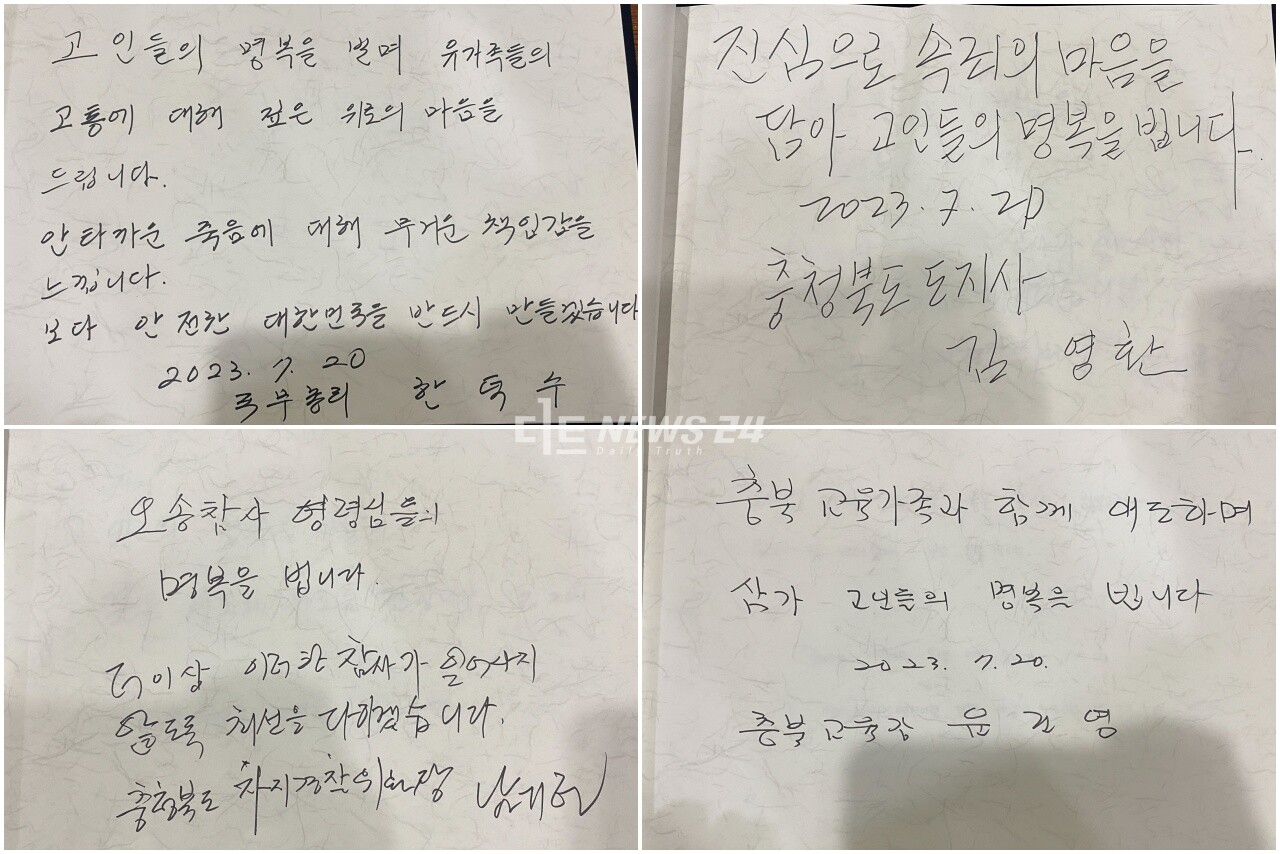 고인들의 명복을 빌며 유가족들의
고통에 대해 깊은 위로의 마음을
드립니다.
안타까운 죽음에 대해 무거운 책임감을
느낍니다.
보다 안전한 대한민국을 반드시 만들겠습니다
2023. 7. 20
국무총리 한덕수
진심으로 속죄의 마음을
담아 고인들의 명복을 빕니다.
2023. 7. 20
충청북도 도지사
김영환
오송참사 영령님들의
명복을 빕니다.
더이상 이러한 참사가 일어나지
않도록 최선을 다하겠습니다.
충청북도 자치경찰위원장
충북 교육가족과 함께 애도하며
삼가 고인들의 명복을 빕니다
2023. 7. 20.
충북교육감 윤건영
NEWS 24
Daily Truth